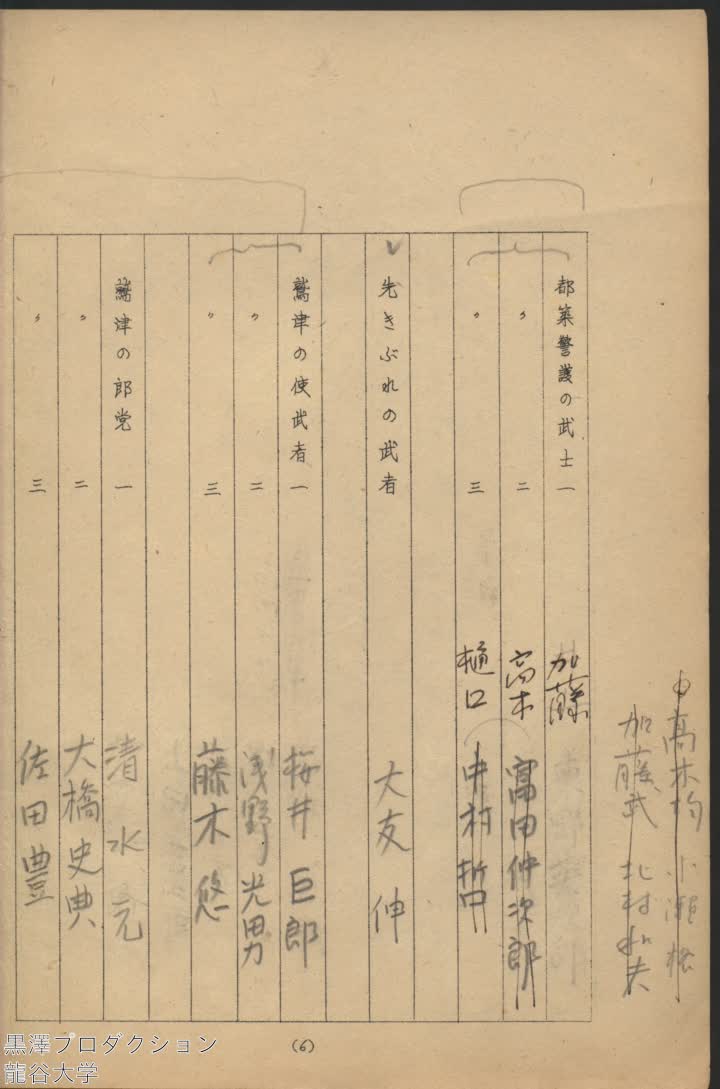 高木均 小瀬
加藤武 北村和夫
都築警護の武士一 加藤
〃 二 高木 富田仲次郎
〃 三 樋口 中村哲
先きぶれの武者 大友伸
鷲津の使武者一 桜井巨郎
〃 二 浅野光男
〃 三 藤木悠
鷲津の郎党一 清水元
〃 二 大橋史典
〃 三 佐田豊
(6)
黒澤プロダクション
龍谷大学